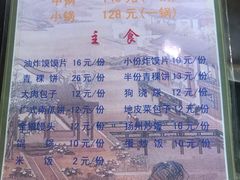 小锅 128 元(一锅)
主食
油炸馍馍片 16 元/份
小份炸馍片 10 元/份
青稞饼 26 元/份
半份青稞饼 13 元/份
大肉包子 12 元/份
狗浇尿 12 元/份
广式南瓜饼 12 元/份
地皮菜包子 12 元/份
金银馒头 12 元/份
扬州炒饭 15 元/份
10 元/份
蛋炒饭 10 元/份
米饭 2 元/份